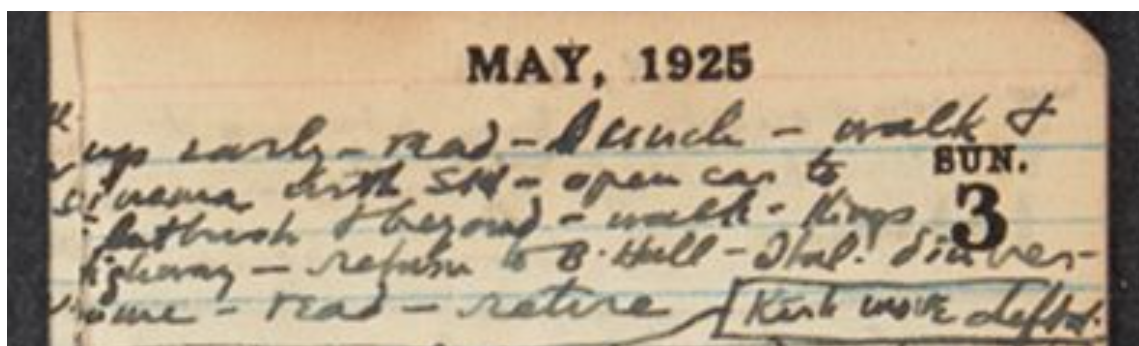 MAY, 1925
up early - read - lunch - walk &
SUN.
cinema with SH - open car to
3
Flatbush & beyond - walk - Kings
Highway - return to B. Hall - Ital. dinner -
home - read - retire
Kirk move